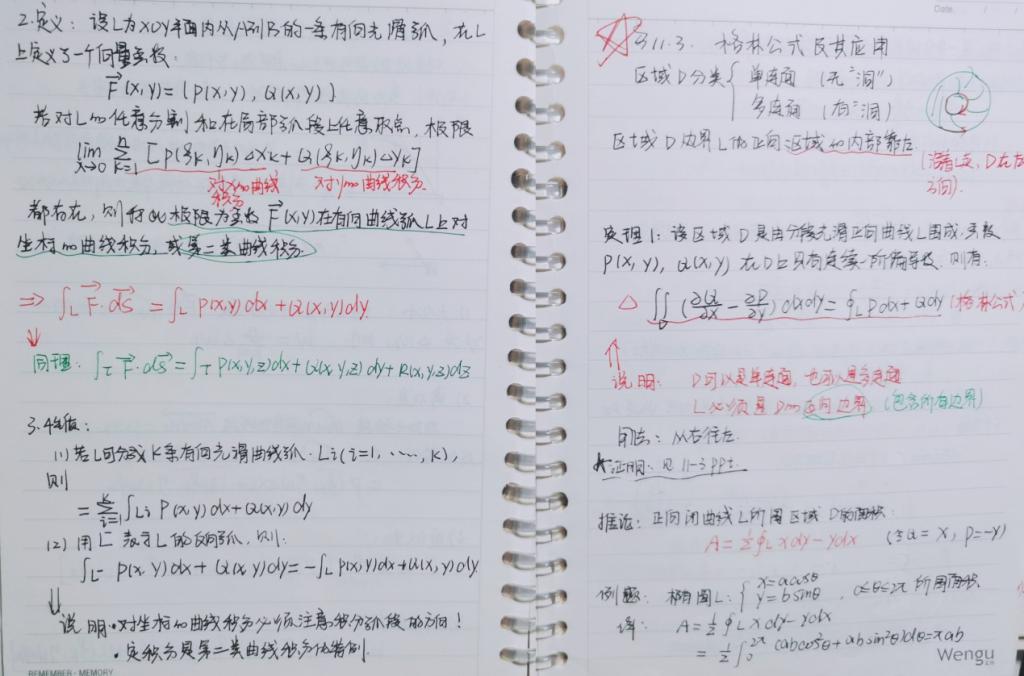 2.定义：设L为XOY平面内从A到B的一条有向光滑弧，在L
上定义了一个向量函数：
F⃗(x,y)=(P(x,y), Q(x,y))
若对L的任意分割和在局部弧段上任意取点，极限
lim λ→0 Σ_{k=1}^{n} [P(ξk,ηk)Δxk+Q(ξk,ηk)Δyk]
对x的曲线积分 对y的曲线积分
都存在，则称此极限为函数F⃗(x,y)在有向曲线弧L上对
坐标的曲线积分，或第二类曲线积分.
⇒ ∫_L F⃗·ds⃗ = ∫_L P(x,y)dx+Q(x,y)dy
同理：∫_Γ F⃗·ds⃗=∫_Γ P(x,y,z)dx+Q(x,y,z)dy+R(x,y,z)dz
3.性质：
(1) 若L可分成K条有向光滑曲线弧. Li(i=1, ……, k),
则
= Σ_{i=1}^{k} ∫_{Li} P(x,y)dx+Q(x,y)dy
(2) 用L⁻表示L的反向弧，则：
∫_{L⁻} P(x,y)dx+Q(x,y)dy=-∫_L P(x,y)dx+Q(x,y)dy
⇓
说明·对坐标的曲线积分必须注意积分弧段的方向！
·定积分是第二类曲线积分的特例.
REMEMBER·MEMORY
Date. / /
§11.3. 格林公式及其应用
区域D分类{ 单连通 (无"洞")
多连通 (有"洞)
区域D边界L的正向:区域的内部靠左.
(沿着L走，D在左
方向).
定理1：设区域D是由分段光滑正向曲线L围成，函数
P(x,y), Q(x,y)在D上具有连续一阶偏导数，则有:
△ ∬_D (∂Q/∂x - ∂P/∂y)dxdy=∮_L Pdx+Qdy (格林公式)
⇑
说明： D可以是单连通，也可以是多连通
L必须是D的正向边界 (包含所有边界)
用法：从右往左.
*证明：见11-3ppt.
推论：正向闭曲线L所围区域D的面积：
A=½∮_L xdy-ydx (令Q=x, P=-y)
例题：椭圆L:{ x=acosθ
y=bsinθ , 0≤θ≤2π 所围面积.
解： A=½∮_L xdy-ydx
= ½∫_0^{2π} (abcos²θ+absin²θ)dθ=πab
Wengu